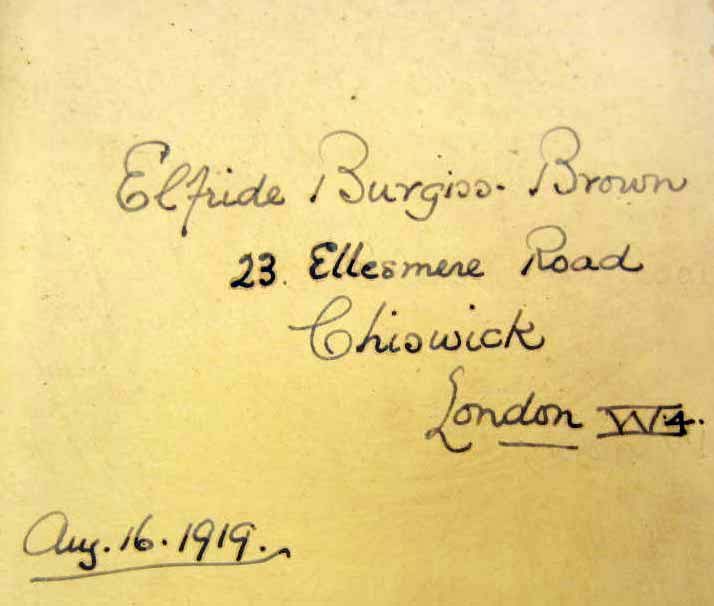 Elfride Burgiss-Brown
23. Ellesmere Road
Chiswick
London W.4.
Aug. 16. 1919.